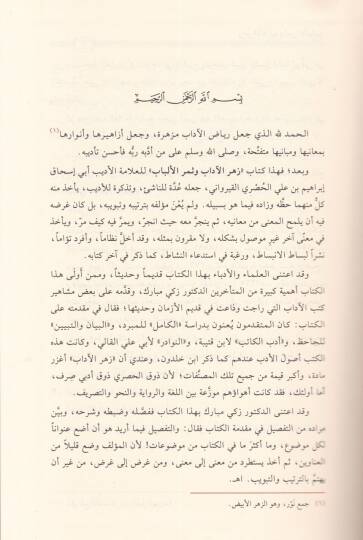 بسم الله الرحمن الرحيم
الحمد لله الذي جعل رياض الآداب مزهرة، وجعل أزاهيرها وأنوارها(١)
بمعانيها ومبانيها متفتّحة، وصلى الله وسلم على من أدّبه ربُّه فأحسن تأديبه.
وبعد؛ فهذا كتاب «زهر الآداب وثمر الألباب» للعلامة الأديب أبي إسحاق
إبراهيم بن علي الحُصْري القيرواني، جعله عُدَّة للناشئ، وتذكرة للأديب، يأخذ منه
كلٌّ منهما حظَّه وزاده فيما هو بسبيله. ولم يُعْنَ مؤلفه بترتيبه وتبويبه، بل كان غرضه
فيه أن يلمح المعنى من معانيه، ثم ينجرّ معه حيث انجرّ، ويمرّ فيه كيف مرّ، ويأخذ
في معنًى آخر غير موصول بشكله، ولا مقرون بمثله، وقد أخلّ نظاماً، وأفرد تؤاماً،
نشراً لبساط الانبساط، ورغبة في استدعاء النشاط، كما ذكر في آخر كتابه.
وقد اعتنى العلماء والأدباء بهذا الكتاب قديماً وحديثاً، وممن أولى هذا
الكتاب أهمية كبيرة من المتأخرين الدكتور زكي مبارك، وقدَّمه على بعض مشاهير
كتب الأدب التي راجت وذاعت في قديم الأزمان وحديثها؛ فقال في مقدمته على
الكتاب: كان المتقدمون يُعنون بدراسة «الكامل» للمبرد، و«البيان والتبيين»
للجاحظ، و«أدب الكاتب» لابن قتيبة، و«النوادر» لأبي علي القالي، وكانت هذه
الكتب أصولَ الأدب عندهم كما ذكر ابن خلدون، وعندي أن «زهر الآداب» أغزر
مادة، وأكبر قيمة من جميع تلك المصنَّفات؛ لأن ذوق الحصري ذوق أدبي صِرف،
أما أولئك، فقد كانت أهواؤهم موزَّعة بين اللغة والرواية والنحو والتصريف.
وقد اعتنى الدكتور زكي مبارك بهذا الكتاب ففصَّله وضبطه وشرحه، وبيَّن
مراده من التفصيل في مقدمة الكتاب فقال: والتفصيل فيما أريد هو أن أضع عنواناً
لكل موضوع، وما أكثرَ ما في الكتاب من موضوعات! لأن المؤلف وضع قليلاً من
العناوين، ثم أخذ يستطرد من معنى إلى معنى، ومن غرض إلى غرض، من غير أن
يهتمَّ بالترتيب والتبويب. اهـ.
(١) جمع نَوْر، وهو الزهر الأبيض.